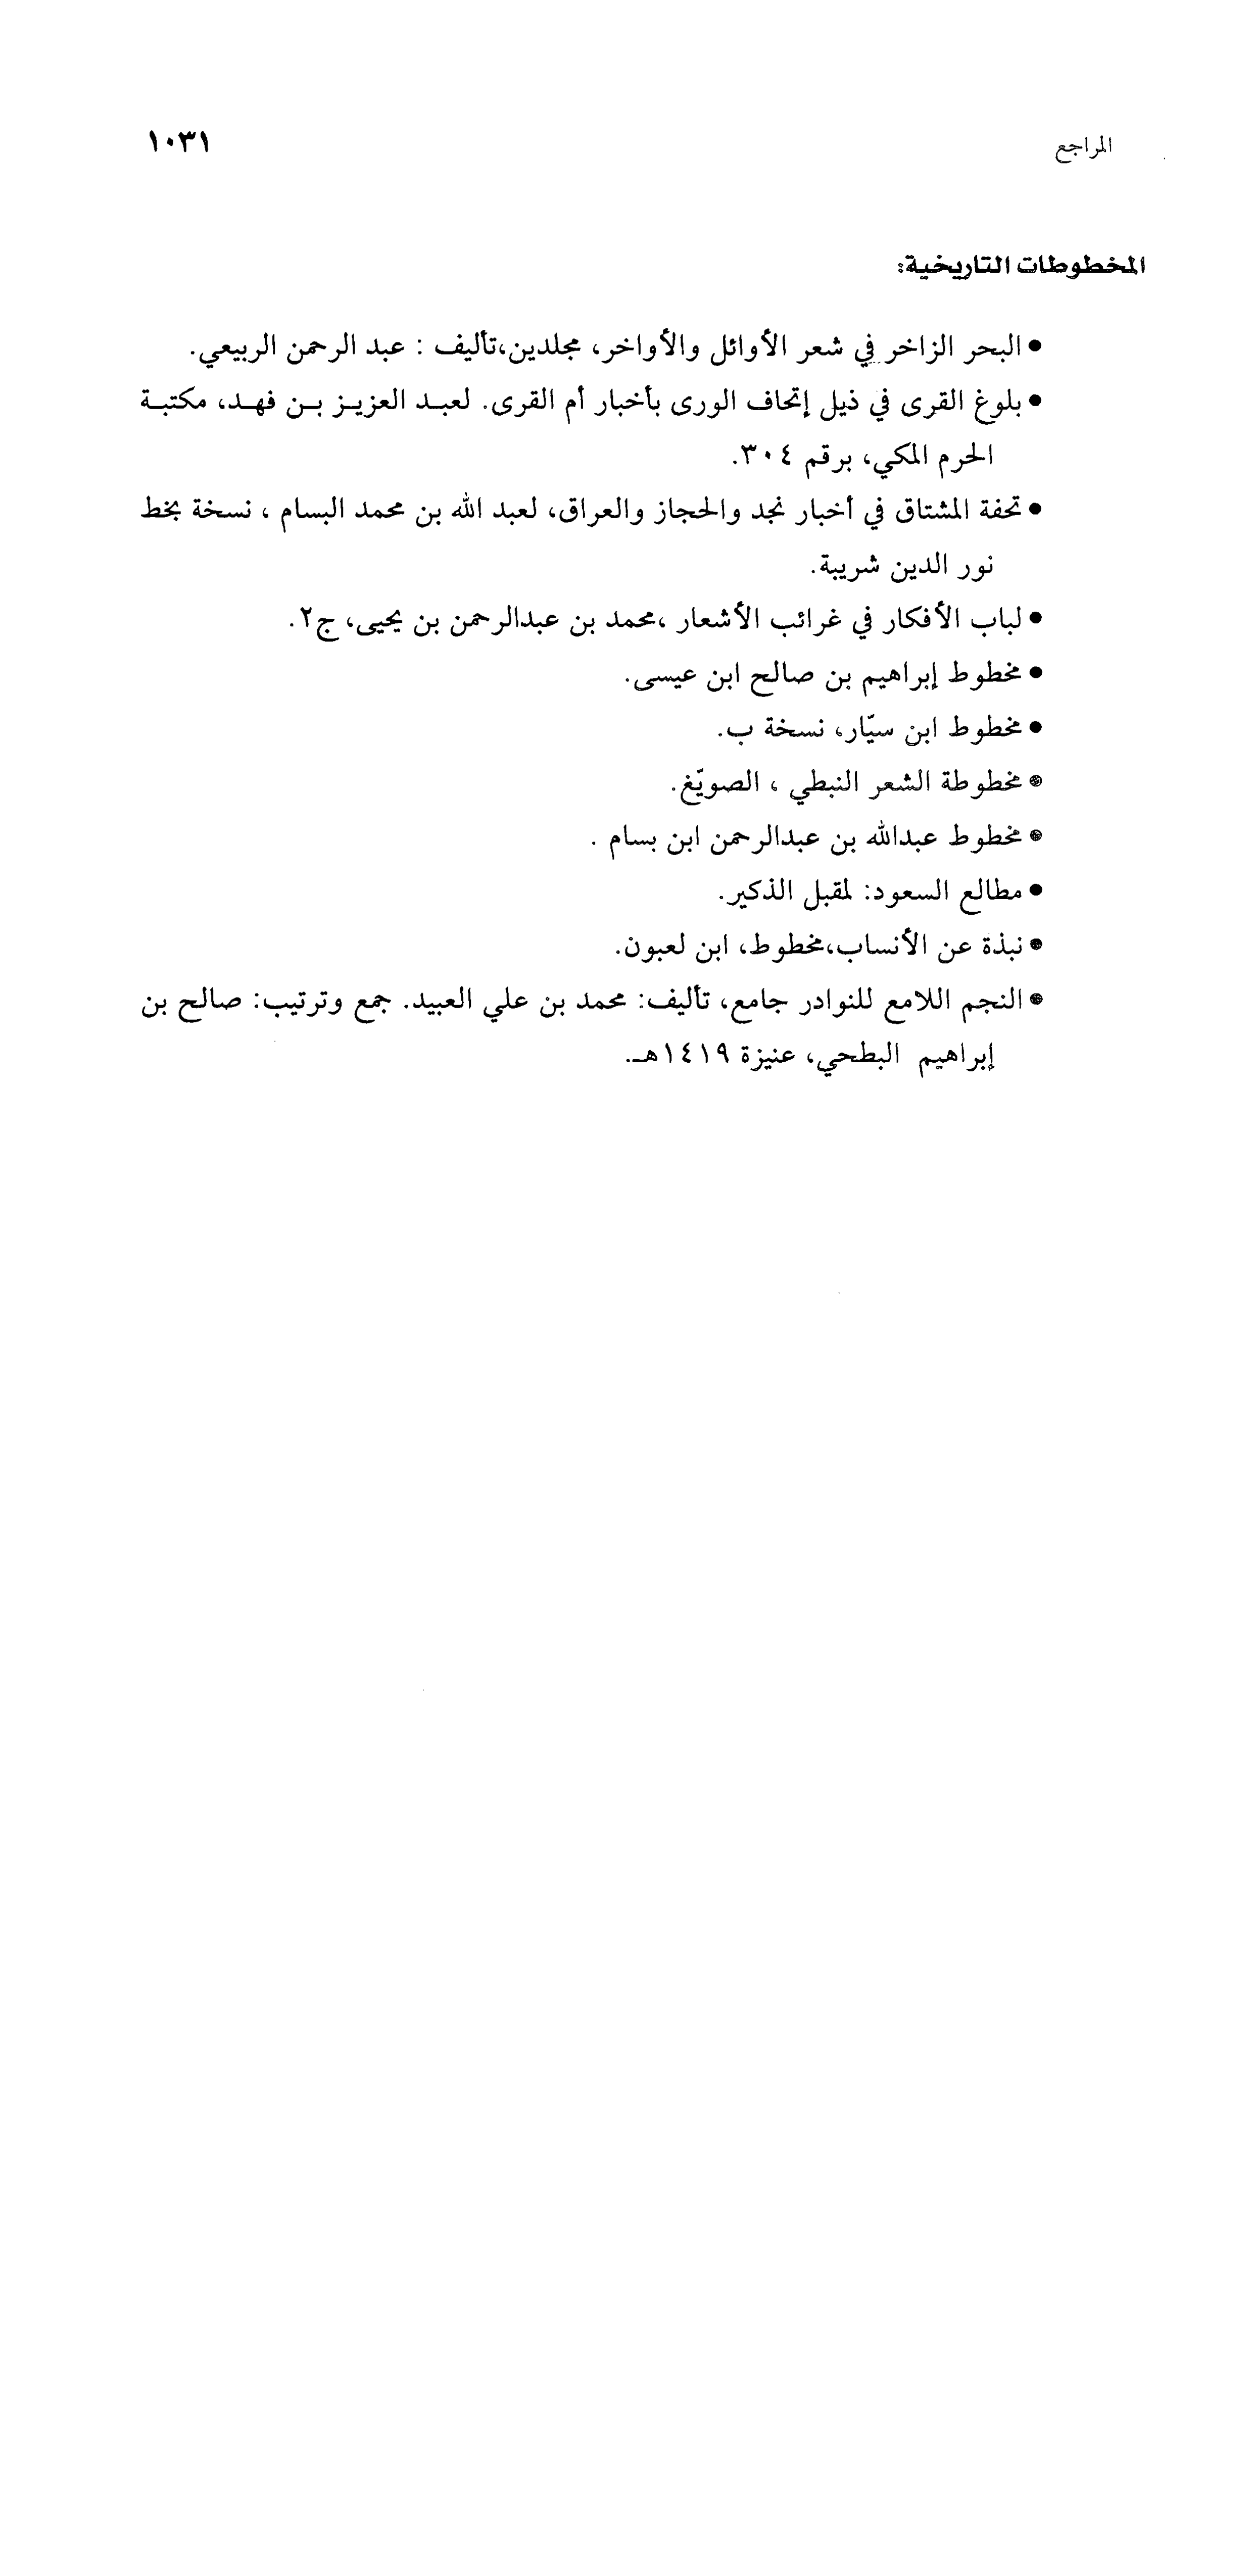 المراجع ١٠٣١
المخطوطات التاريخية:
● البحر الزاخر في شعر الأوائل والأواخر، مجلدين،تأليف : عبد الرحمن الربيعي.
● بلوغ القرى في ذيل إتحاف الورى بأخبار أم القرى. لعبد العزيز بن فهد، مكتبة
الحرم المكي، برقم ٣٠٤.
● تحفة المشتاق في أخبار نجد والحجاز والعراق، لعبد الله بن محمد البسام ، نسخة بخط
نور الدين شريبة.
● لباب الأفكار في غرائب الأشعار ،محمد بن عبدالرحمن بن يحيى، ج٢.
● مخطوط إبراهيم بن صالح ابن عيسى.
● مخطوط ابن سيّار، نسخة ب.
● مخطوطة الشعر النبطي ، الصويّغ.
● مخطوط عبدالله بن عبدالرحمن ابن بسام .
● مطالع السعود: لمقبل الذكير.
● نبذة عن الأنساب،مخطوط، ابن لعبون.
● النجم اللامع للنوادر جامع، تأليف: محمد بن علي العبيد. جمع وترتيب: صالح بن
إبراهيم البطحي، عنيزة ١٤١٩هـ.